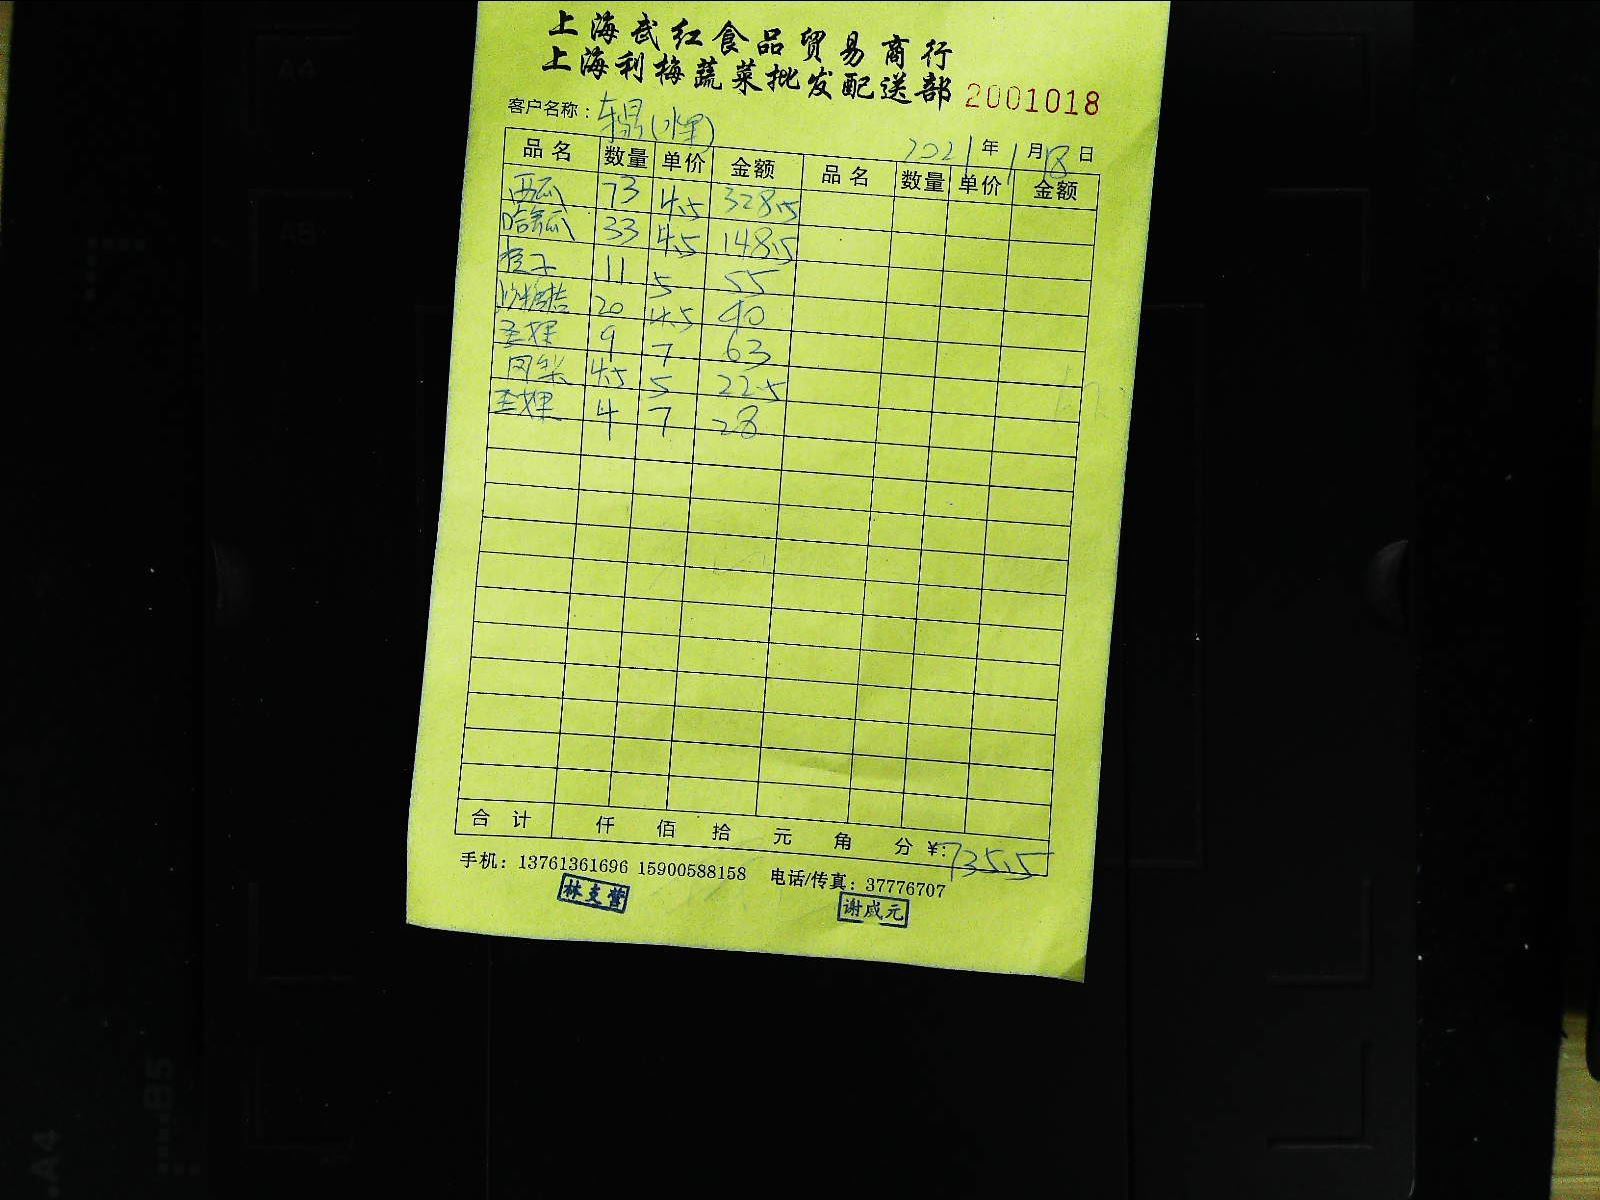 上海武红食品贸易商行
上海利梅蔬菜批发配送部 2001018
客户名称：东昴(水果) 2021年1月18日
品名 数量 单价 金额 品名 数量 单价 金额
西瓜 73 4.5 328.5
哈密瓜 33 4.5 148.5
橙子 11 5 55
沙糖桔 20 4.5 90
圣女果 9 7 63
凤梨 4.5 5 22.5
圣女果 4 7 28
合计 仟 佰 拾 元 角 分 ¥:735.5
手机：13761361696 15900588158 电话/传真：37776707
林支营 谢成元